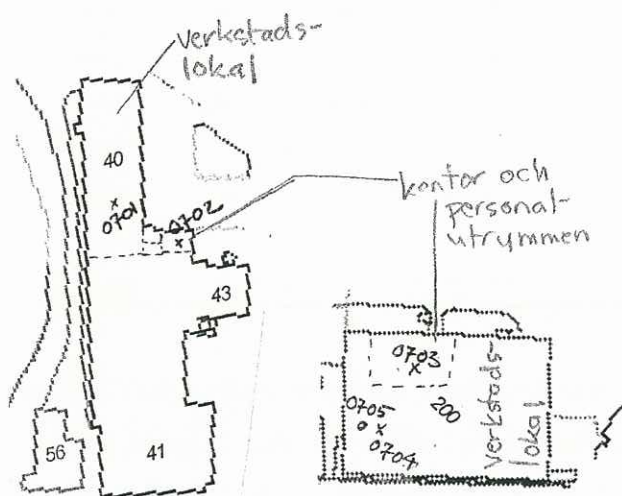 verkstads-
lokal
40
0701
0702
kontor och
personal-
utrymmen
43
0703
200
verkstads-
lokal
0705
0704
56
41